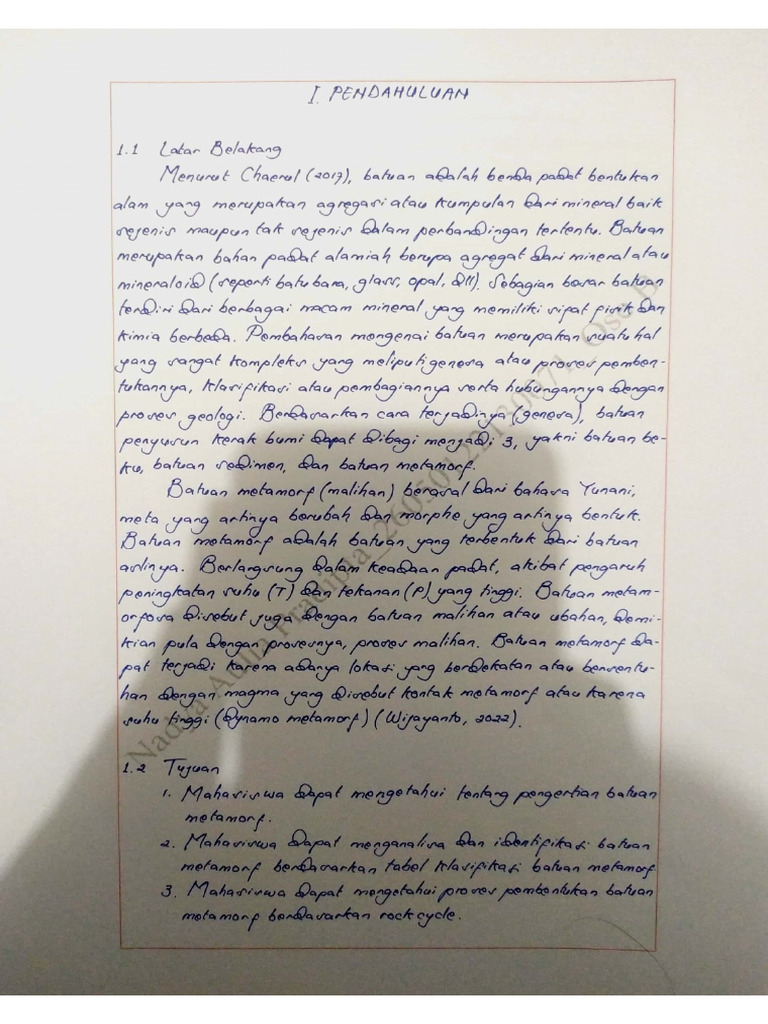 I. PENDAHULUAN
1.1 Latar Belakang
Menurut Chaerul (2017), batuan adalah benda padat bentukan
alam yang merupakan agregasi atau kumpulan dari mineral baik
sejenis maupun tak sejenis dalam perbandingan tertentu. Batuan
merupakan bahan padat alamiah berupa agregat dari mineral atau
mineraloid (seperti batu bara, glass, opal, dll). Sebagian besar batuan
terdiri dari berbagai macam mineral yang memiliki sifat fisik dan
kimia berbeda. Pembahasan mengenai batuan merupakan suatu hal
yang sangat kompleks yang meliputi genesa atau proses pemben-
tukannya, klasifikasi atau pembagiannya serta hubungannya dengan
proses geologi. Berdasarkan cara terjadinya (genesa), batuan
penyusun kerak bumi dapat dibagi menjadi 3, yakni batuan be-
ku, batuan sedimen, dan batuan metamorf.
Batuan metamorf (malihan) berasal dari bahasa Yunani,
meta yang artinya berubah dan morphe yang artinya bentuk.
Batuan metamorf adalah batuan yang terbentuk dari batuan
aslinya. Berlangsung dalam keadaan padat, akibat pengaruh
peningkatan suhu (T) dan tekanan (P) yang tinggi. Batuan metam-
orfosa disebut juga dengan batuan malihan atau ubahan, demi-
kian pula dengan prosesnya, proses malihan. Batuan metamorf da-
pat terjadi karena adanya lokasi yang berdekatan atau bersentu-
han dengan magma yang disebut kontak metamorf atau karena
suhu tinggi (dynamo metamorf) (Wijayanto, 2022).
1.2 Tujuan
1. Mahasiswa dapat mengetahui tentang pengertian batuan
metamorf.
2. Mahasiswa dapat menganalisa dan identifikasi batuan
metamorf berdasarkan tabel klasifikasi batuan metamorf
3. Mahasiswa dapat mengetahui proses pembentukan batuan
metamorf berdasarkan rock cycle.